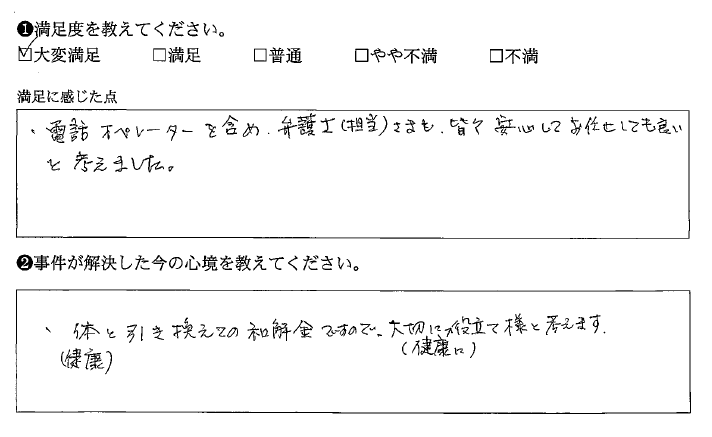 ❶満足度を教えてください。
☑大変満足 □満足 □普通 □やや不満 □不満
満足に感じた点
・電話オペレーターを含め、弁護士(担当)さまも、皆々安心してお任せしても良い
と考えました。
❷事件が解決した今の心境を教えてください。
・体と引き換えての和解金ですので、大切に役立て様と考えます。
(健康) (健康に)